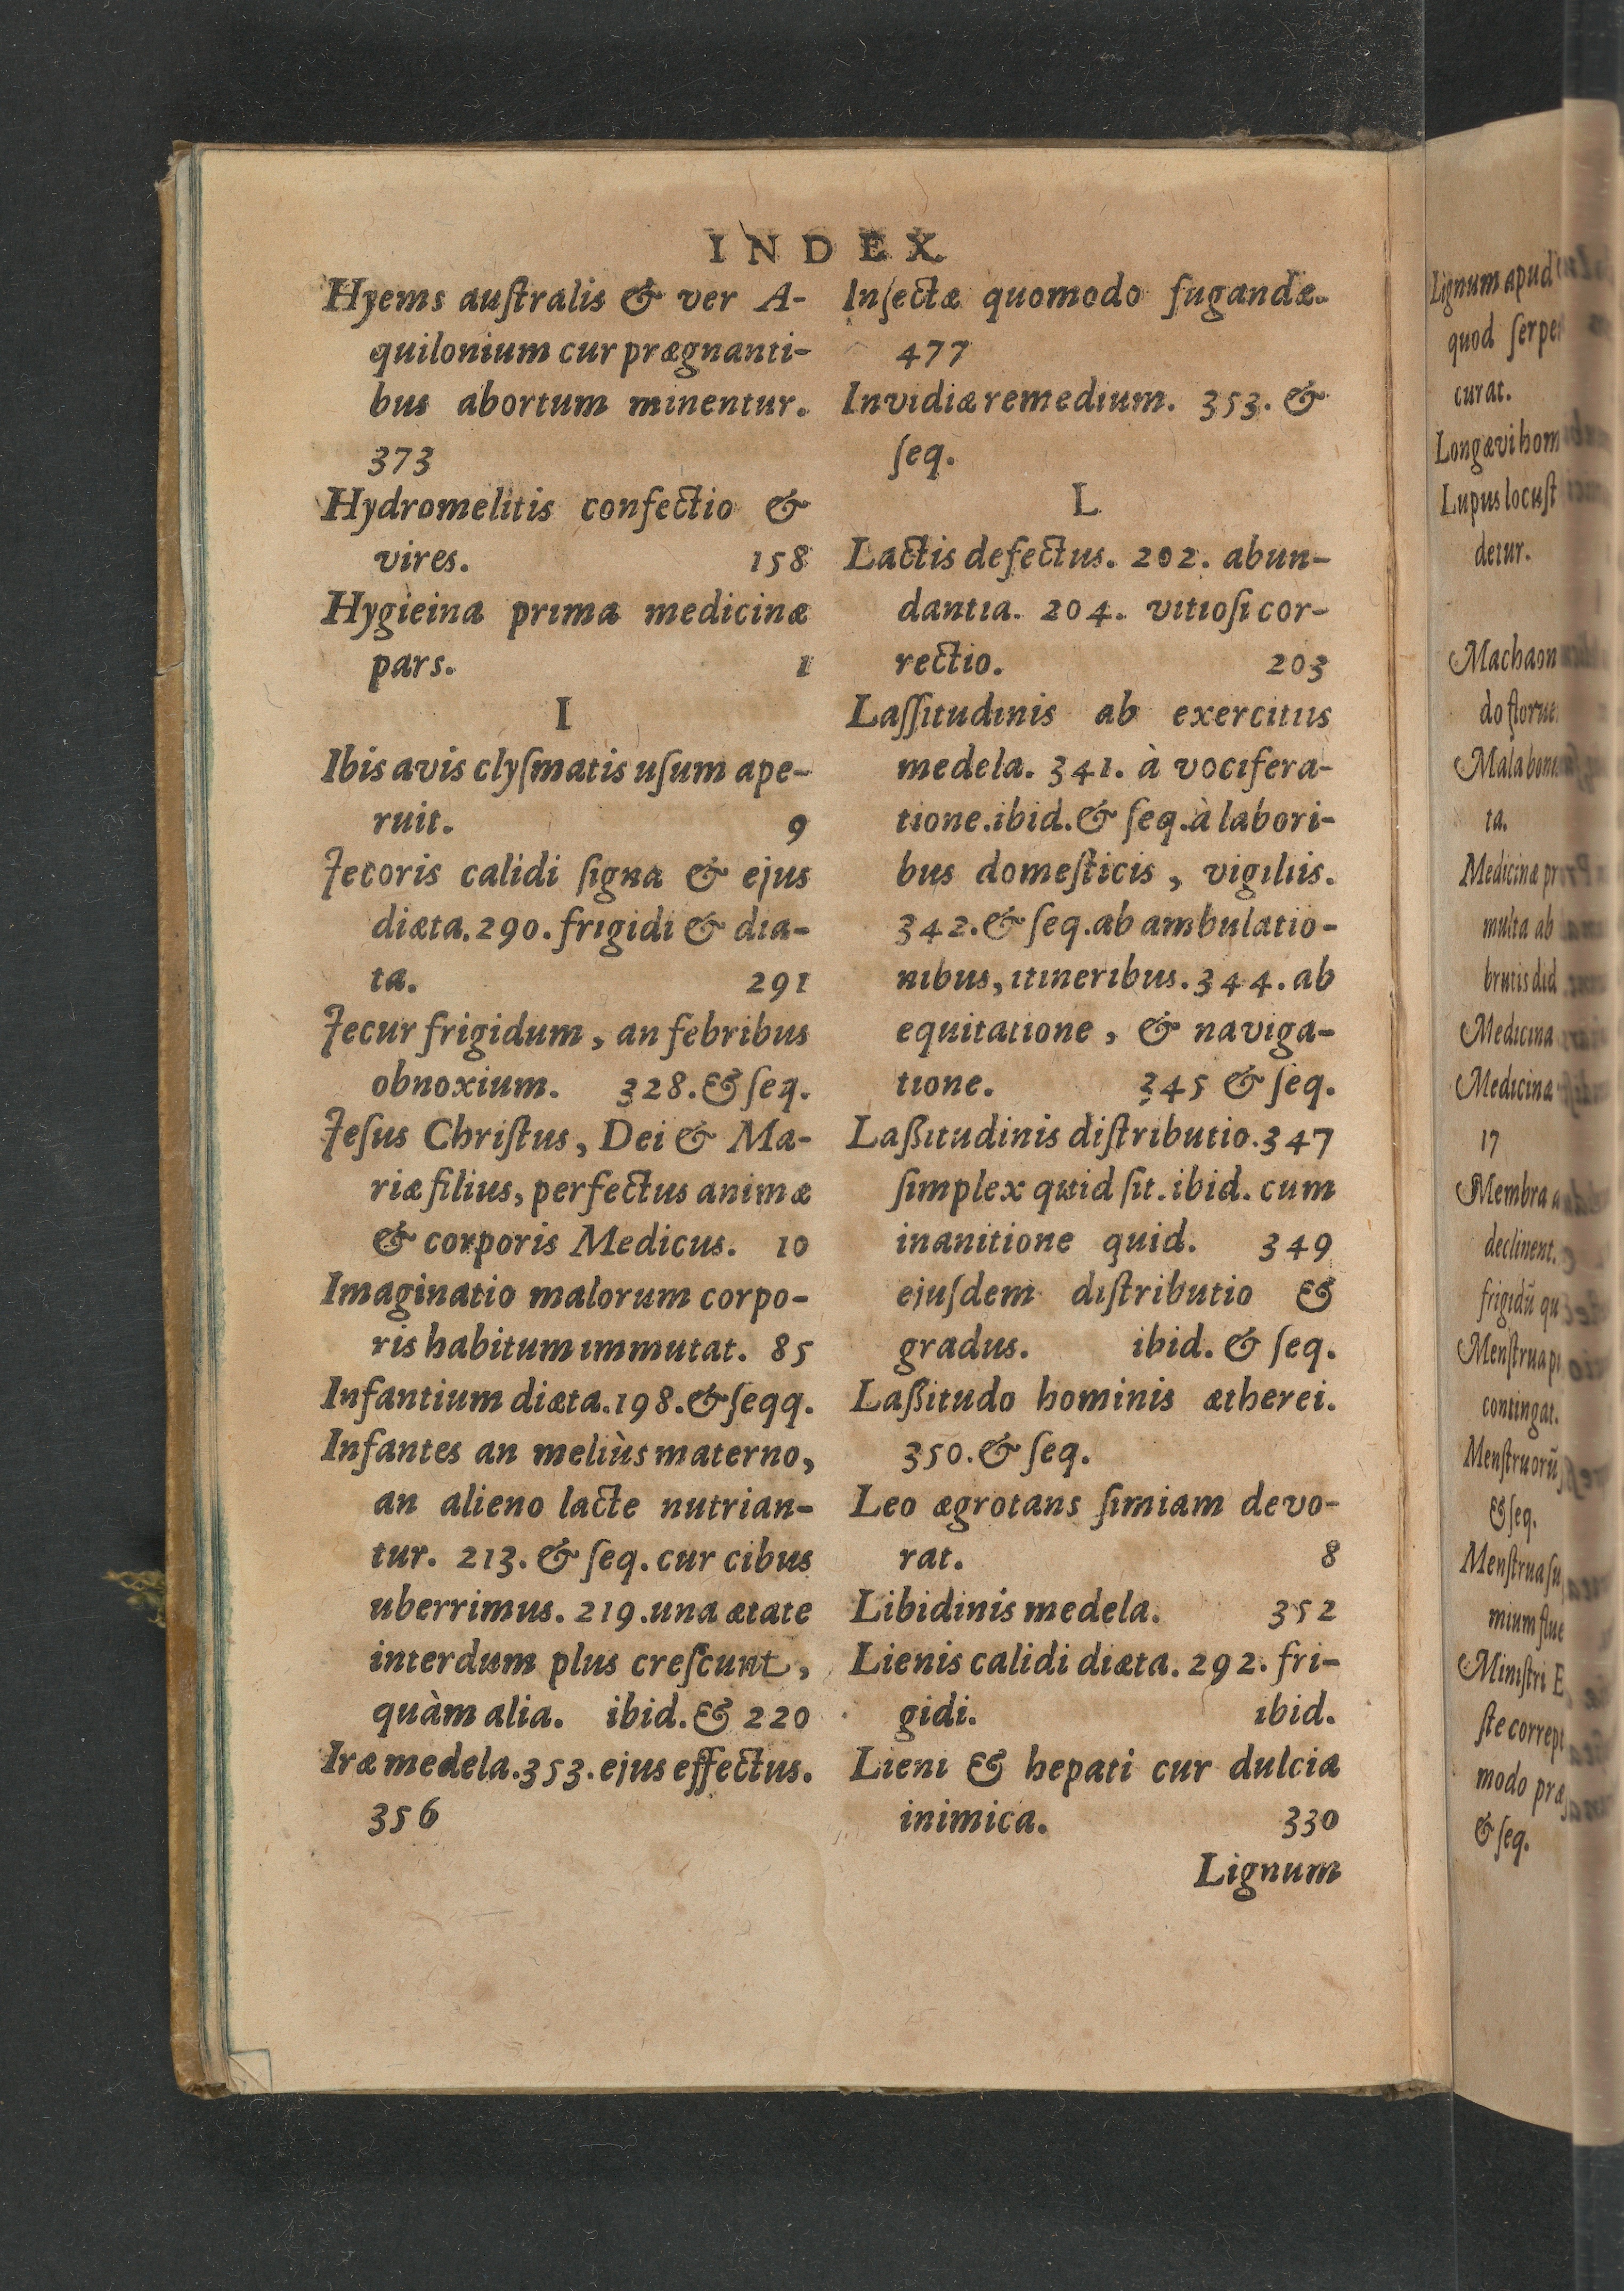 INDEX
Hyems auſtralis & ver A-
quilonium cur prægnanti-
bus abortum minentur.
373
Hydromelitis confectio &
vires. 158
Hygieina prima medicinæ
pars. 1
I
Ibis avis clyſmatis uſum ape-
ruit. 9
Jecoris calidi ſigna & ejus
diæta. 290. frigidi & diæ-
ta. 291
Jecur frigidum, an febribus
obnoxium. 328. & ſeq.
Jeſus Chriſtus, Dei & Ma-
riæ filius, perfectus animæ
& corporis Medicus. 10
Imaginatio malorum corpo-
ris habitum immutat. 85
Infantium diæta. 198. & ſeqq.
Infantes an meliùs materno,
an alieno lacte nutrian-
tur. 213. & ſeq. cur cibus
uberrimus. 219. una ætate
interdum plus creſcunt,
quàm alia. ibid. & 220
Iræ medela. 353. ejus effectus.
356
Inſectæ quomodo fugandæ.
477
Invidiæ remedium. 353. &
ſeq.
L
Lactis defectus. 202. abun-
dantia. 204. vitioſi cor-
rectio. 203
Laſſitudinis ab exercitiis
medela. 341. à vocifera-
tione. ibid. & ſeq. à labori-
bus domeſticis, vigiliis.
342. & ſeq. ab ambulatio-
nibus, itineribus. 344. ab
equitatione, & naviga-
tione. 345 & ſeq.
Laßitudinis diſtributio. 347
ſimplex quid ſit. ibid. cum
inanitione quid. 349
ejuſdem diſtributio &
gradus. ibid. & ſeq.
Laßitudo hominis ætherei.
350. & ſeq.
Leo ægrotans ſimiam devo-
rat. 8
Libidinis medela. 352
Lienis calidi diæta. 292. fri-
gidi. ibid.
Lieni & hepati cur dulcia
inimica. 330
Lignum
Lignum apud
quod
curat.
Longævi hom
Lupus locuſt
detur.
Machaon
do florue
Mala
ta.
Medicinæ pr
multa ab
brutis did
Medicina
Medicina
17
Membra a
declinent.
frigidũ qu
Menſtrua
contingat.
Menſtruorũ
& ſeq.
Menſtrua ſu
mium flue
Miniſtri E
ſte corrept
modo præ
& ſeq.